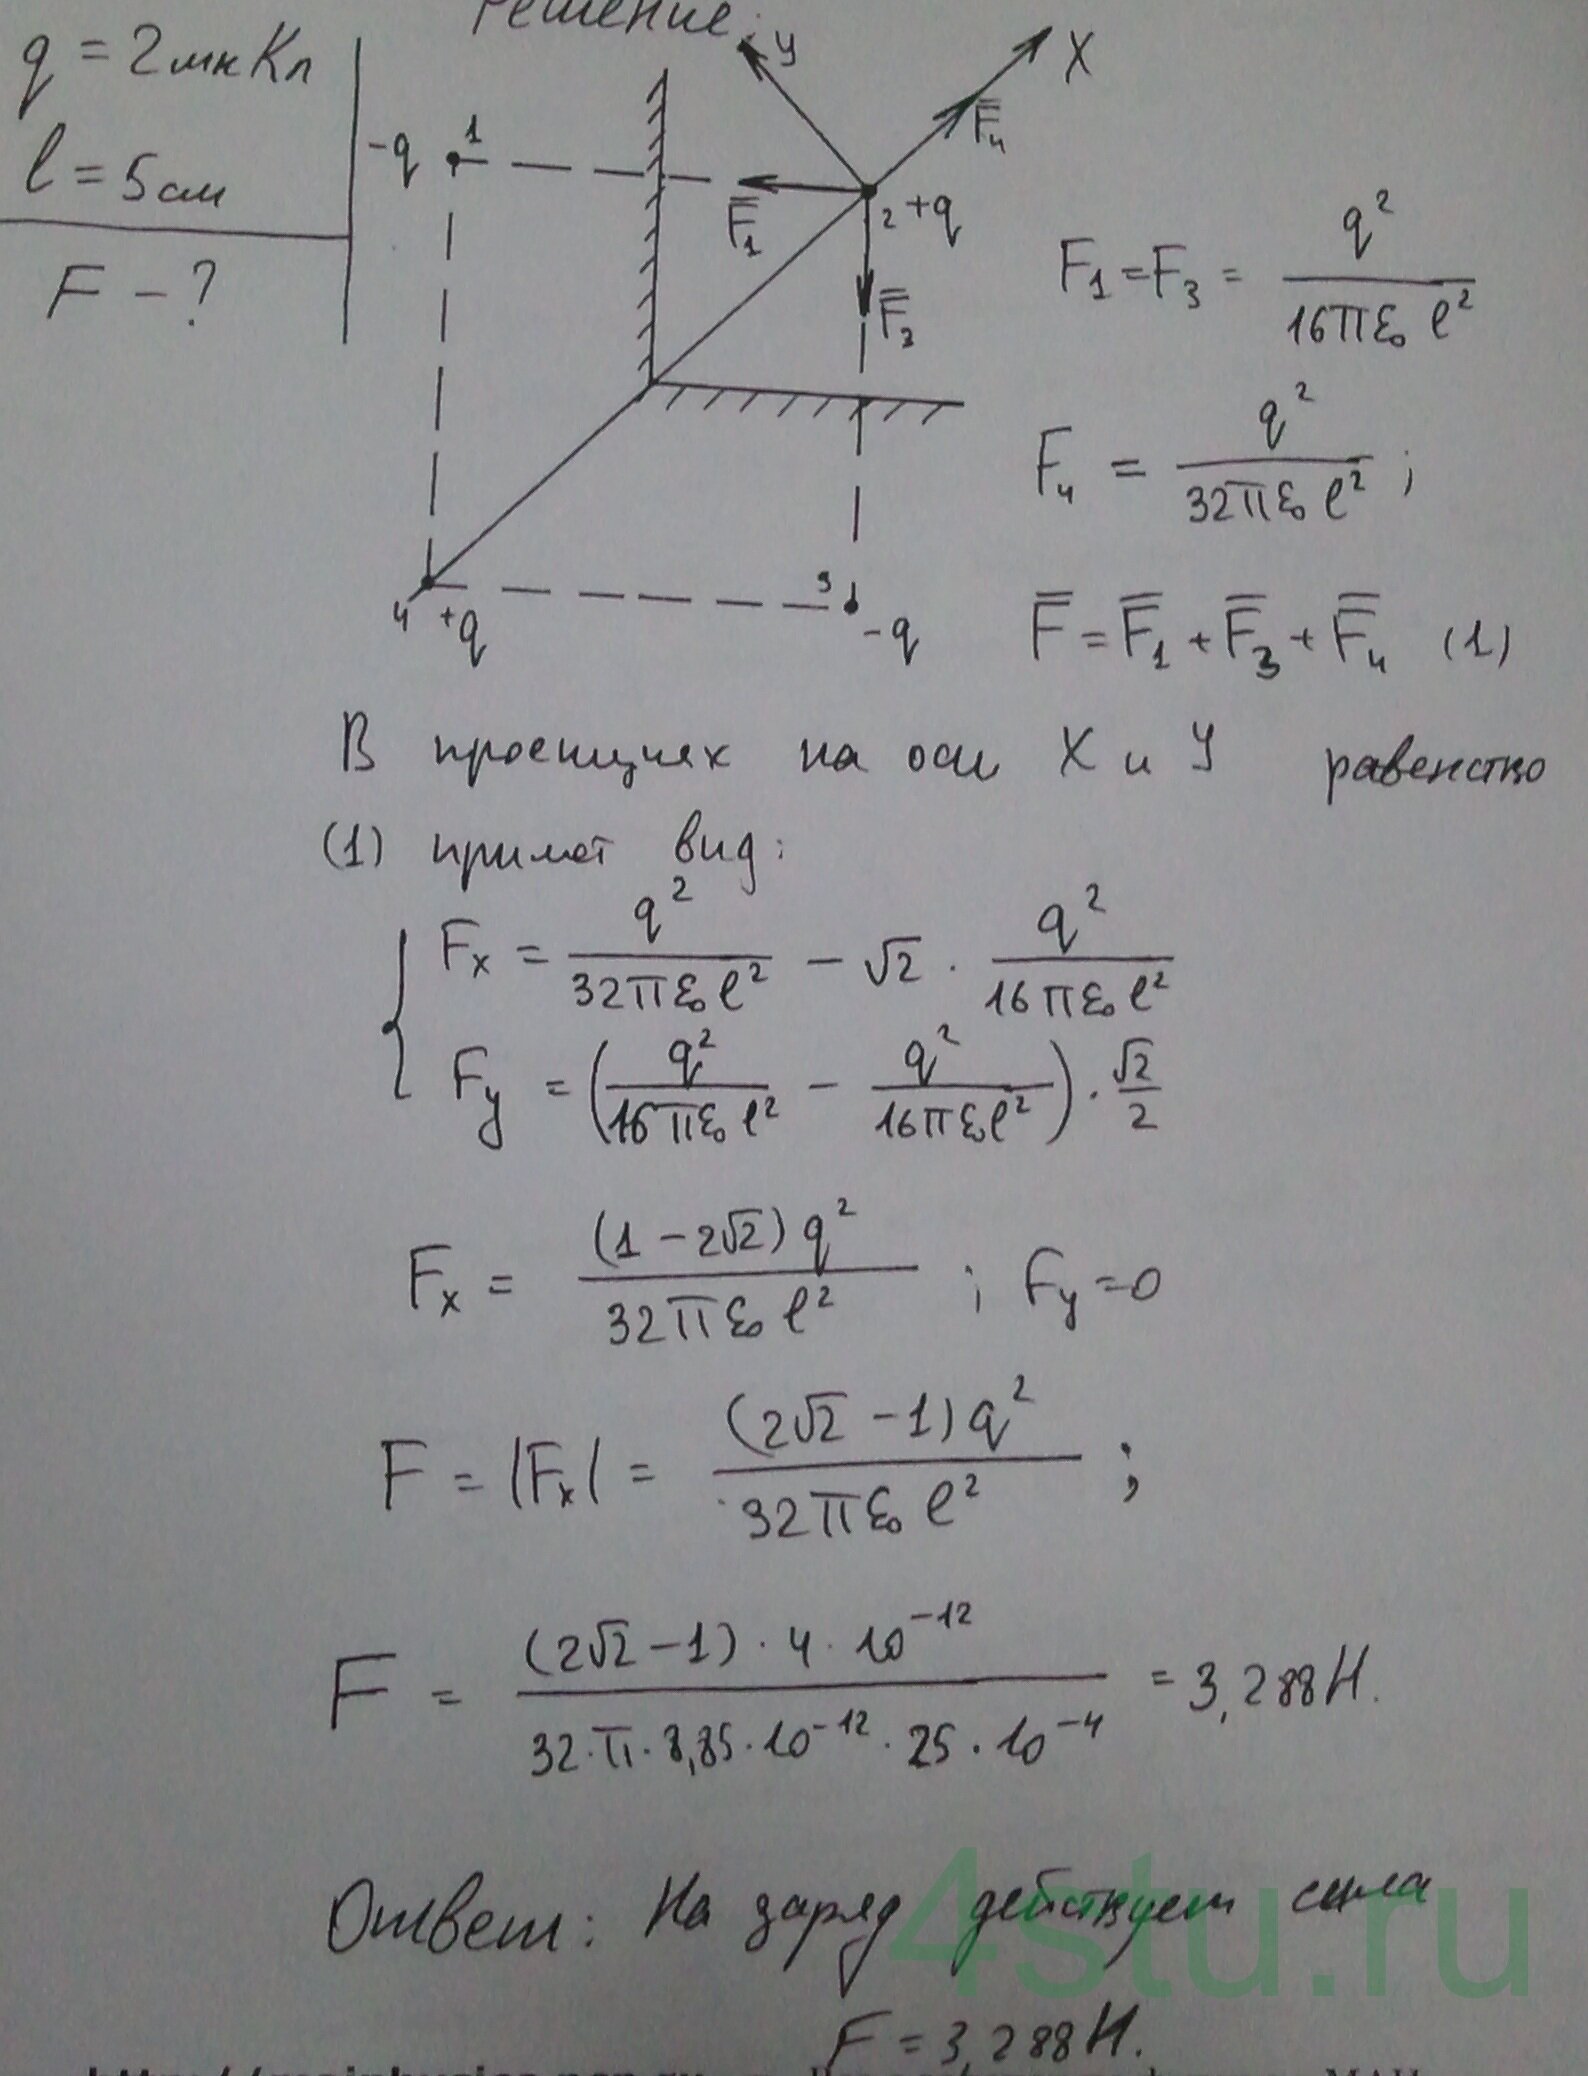 Решение:
q = 2мкКл
l = 5см
F - ?
y
X
-q 1
F̅₁
F̅₄
2 +q
F̅₃
4 +q
3 -q
F₁ = F₃ = q² / 16πε₀l²
F₄ = q² / 32πε₀l² ;
F̅ = F̅₁ + F̅₃ + F̅₄ (1)
В проекциях на оси X и Y равенство
(1) примет вид:
Fx = q² / 32πε₀l² - √2 · q² / 16πε₀l²
Fy = (q² / 16πε₀l² - q² / 16πε₀l²) · √2 / 2
Fx = (1 - 2√2) q² / 32πε₀l² ; Fy = 0
F = |Fx| = (2√2 - 1) q² / 32πε₀l² ;
F = (2√2 - 1) · 4 · 10⁻¹² / 32 · π · 8,85 · 10⁻¹² · 25 · 10⁻⁴ = 3,288Н.
Ответ: На заряд действует сила
F = 3,288Н.
4stu.ru